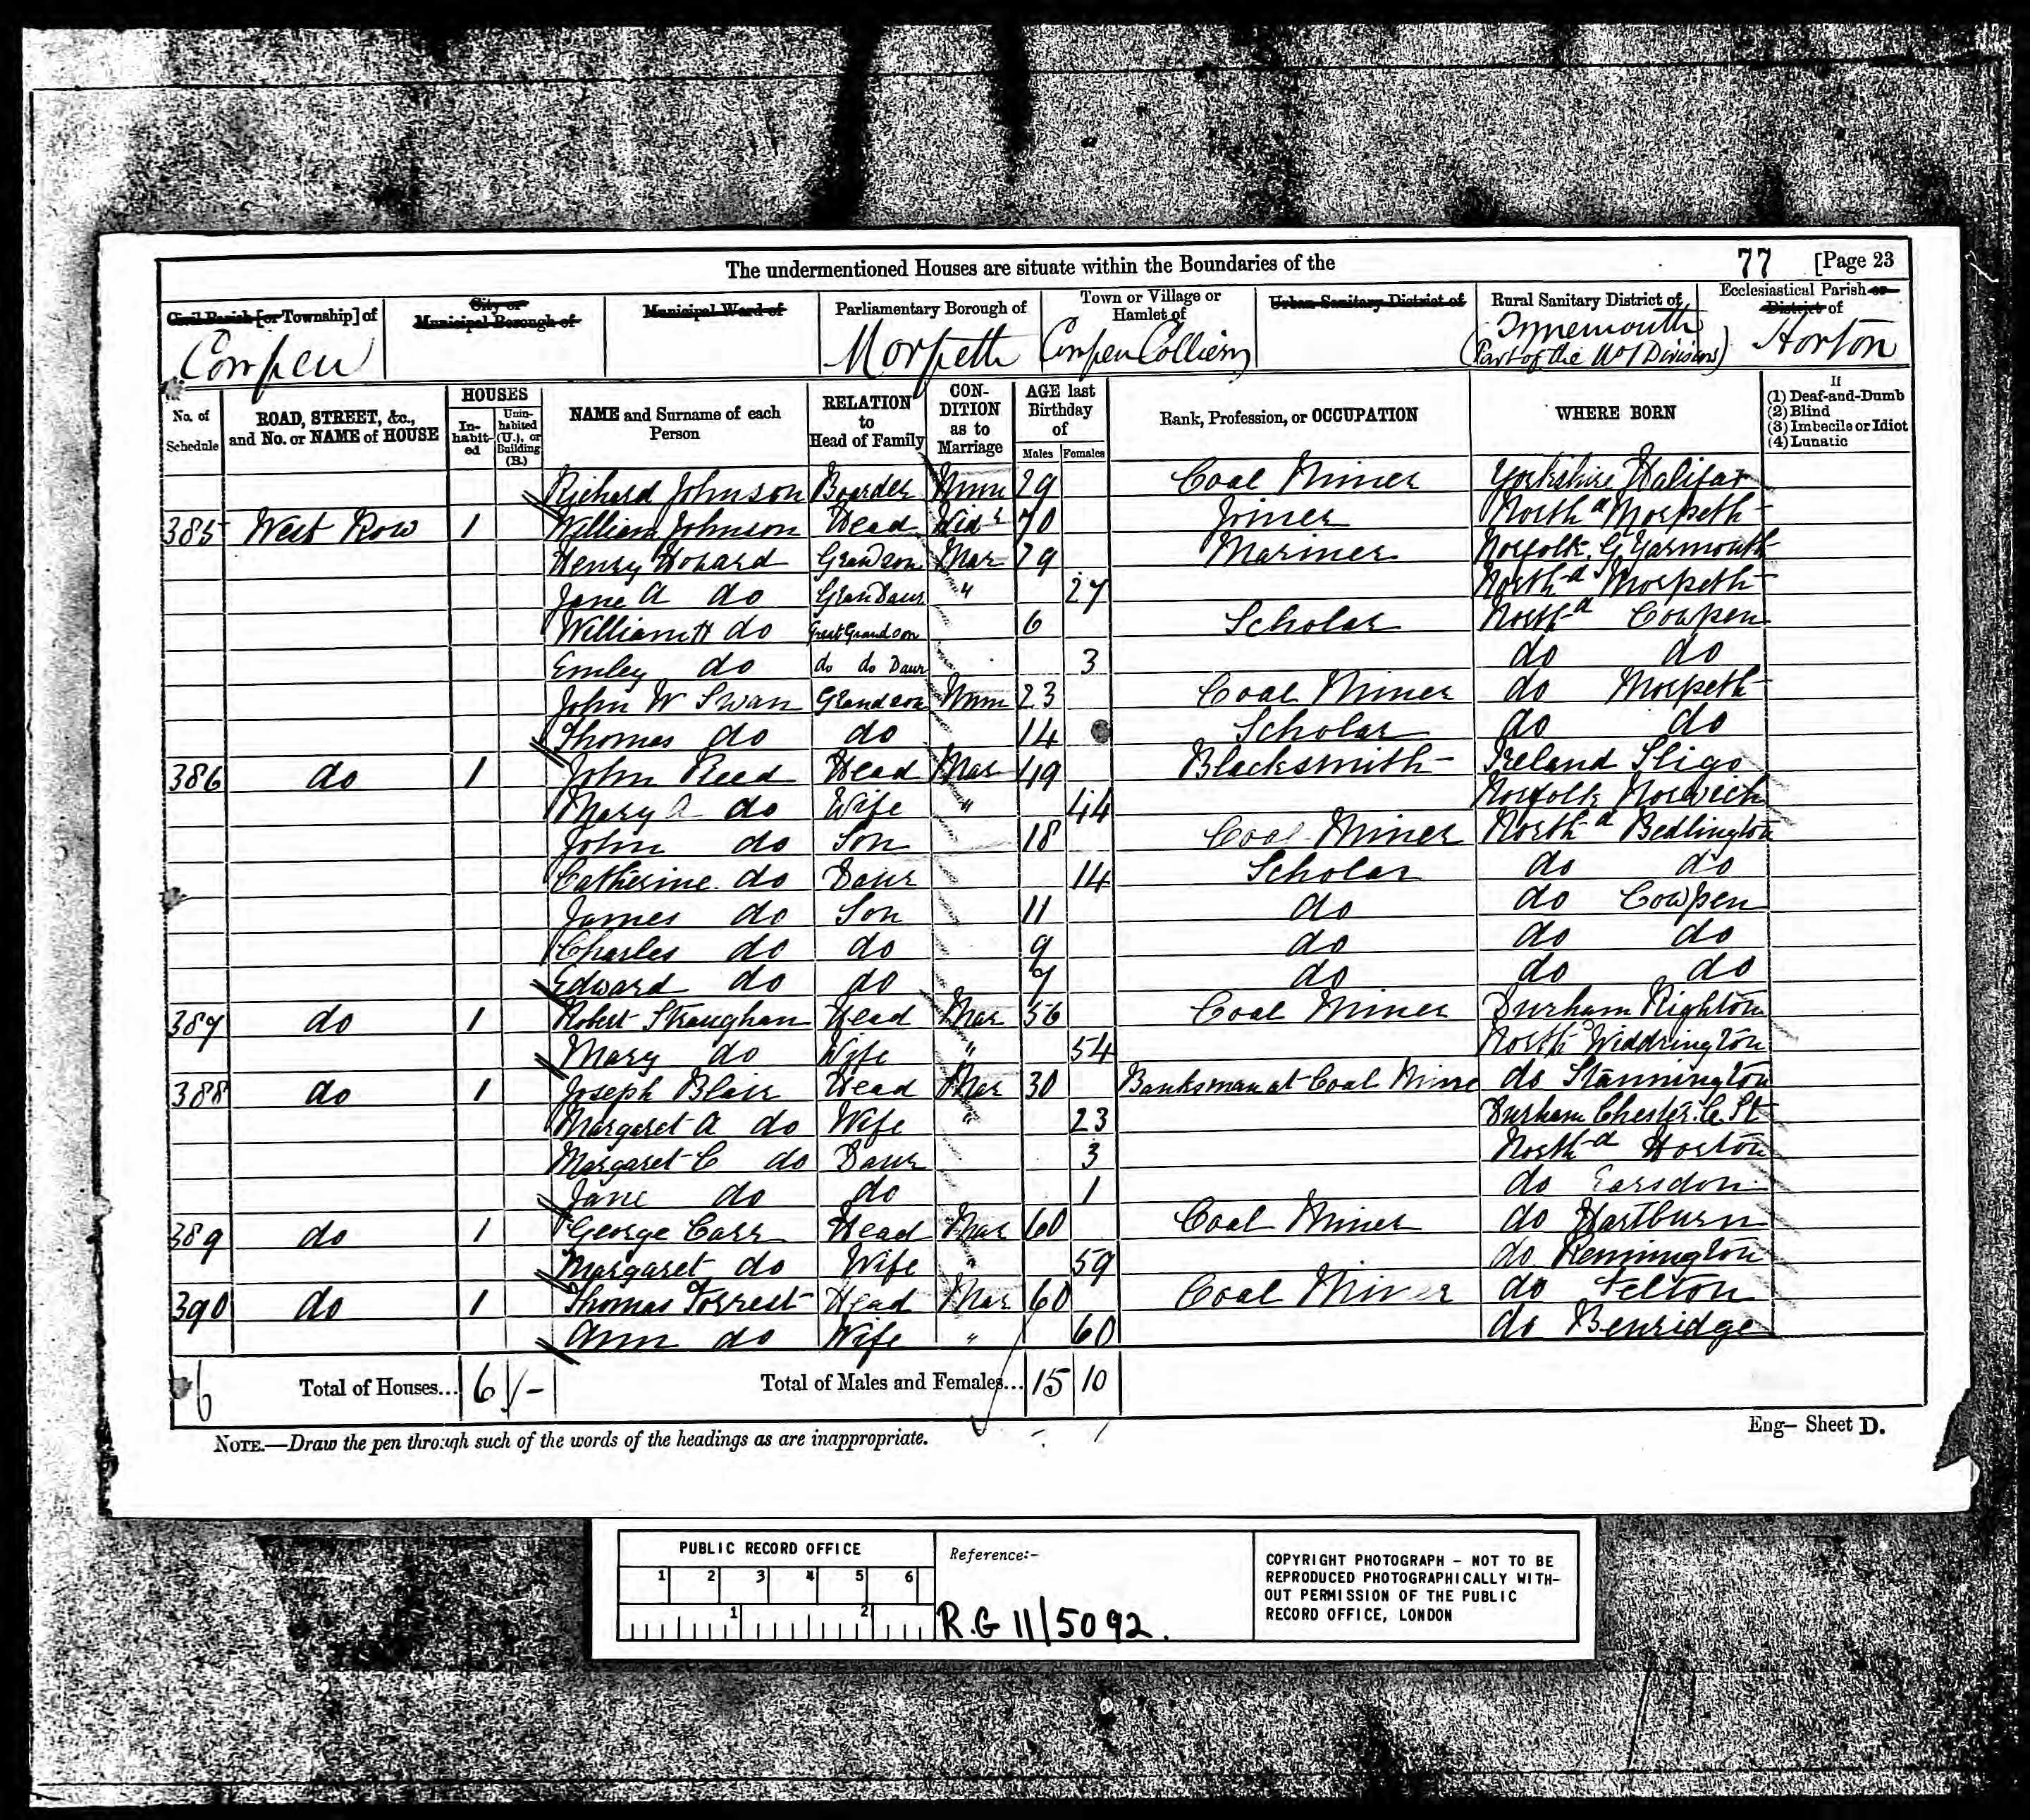 The undermentioned Houses are situate within the Boundaries of the 77 [Page 23
Civil Parish [or Township] of City or Municipal Borough of Municipal Ward of Parliamentary Borough of Town or Village or Hamlet of Urban Sanitary District of Rural Sanitary District of Ecclesiastical Parish or District of
Cowpen Morpeth Cowpen Colliery Tynemouth (Part of the No 1 Division) Horton
No. of Schedule ROAD, STREET, &c., and No. or NAME of HOUSE HOUSES In-habit-ed Unin-habited (U.), or Building (B.) NAME and Surname of each Person RELATION to Head of Family CON-DITION as to Marriage AGE last Birthday of Males Females Rank, Profession, or OCCUPATION WHERE BORN If (1) Deaf-and-Dumb (2) Blind (3) Imbecile or Idiot (4) Lunatic
Richard Johnson Boarder Unm 29 Coal Miner Yorkshire Halifax
385 West Row 1 William Johnson Head Widr 70 Joiner Northd Morpeth
Henry Howard Grandson Mar 29 Mariner Norfolk G Yarmouth
Jane A do GranDaur " 27 Northd Morpeth
William H do Great Grandson 6 Scholar Northd Cowpen
Emley do do do Daur 3 do do
John W Swan Grandson Unm 23 Coal Miner do Morpeth
Thomas do do 14 Scholar do do
386 do 1 John Reed Head Mar 49 Blacksmith Ireland Sligo
Mary A do Wife " 44 Norfolk Norwich
John do Son 18 Coal Miner Northd Bedlington
Catherine do Daur 14 Scholar do do
James do Son 11 do do Cowpen
Charles do do 9 do do do
Edward do do 7 do do do
387 do 1 Robert Straughan Head Mar 56 Coal Miner Durham Righton
Mary do Wife " 54 Northd Widdrington
388 do 1 Joseph Blair Head Mar 30 Banksman at Coal Mine do Stannington
Margaret A do Wife " 23 Durham Chester Le St
Margaret C do Daur 3 Northd Horton
Jane do do 1 do Earsdon
389 do 1 George Carr Head Mar 60 Coal Miner do Hartburn
Margaret do Wife " 59 do Rennington
390 do 1 Thomas Forrest Head Mar 60 Coal Miner do Felton
Ann do Wife " 60 do Benridge
6 Total of Houses... 6 - Total of Males and Females... 15 10
NOTE.—Draw the pen through such of the words of the headings as are inappropriate.
Eng— Sheet D.
PUBLIC RECORD OFFICE
1 2 3 4 5 6
1 2
Reference:-
R.G 11/5092.
COPYRIGHT PHOTOGRAPH - NOT TO BE
REPRODUCED PHOTOGRAPHICALLY WITH-
OUT PERMISSION OF THE PUBLIC
RECORD OFFICE, LONDON